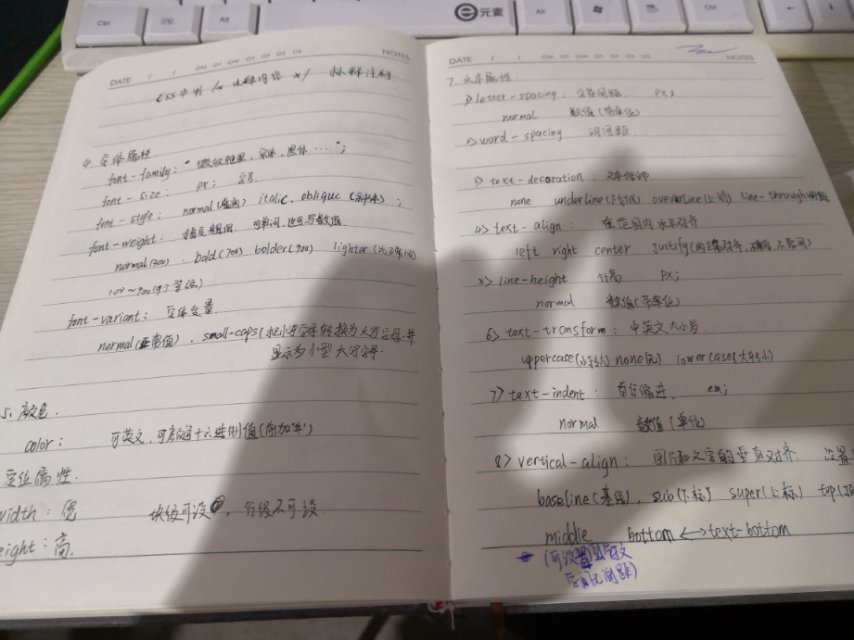 Ctrl
Alt
e元素
Alt
Ctrl
DATE / / NOTES
css中用 /* 注释内容 */ 标释注释.
4. 字体属性
font-family: "微软雅黑, 宋体, 黑体 ....";
font-size: px; 字号
font-style: normal italic, oblique ;
font-weight: 指定粗细
normal(400) . bold(700) bolder(900) lighter
100~900(9个等级)
font-variant: 字体变量
normal , small-caps(把小写字母转换为大写字母.并
显示为小型大写字母.
5. 颜色.
color: 可英文, 十六进制值(前加'#')
定位属性.
width: 宽 块级可设 , 行级不可设.
eight: 高.
DATE / / NOTES
7. 文本属性
1> letter-spacing: 字符间距. px;
normal 数值(带单位)
2> word-spacing 词间距.
3> text-decoration: 文本修饰
none underline(下划线) overline(上划) line-through
4> text-align: 在范围内水平对齐
left right center justify
5> line-height 行高 px;
normal 数值(带单位)
6> text-transform: 中英文大小写
uppercase(小转大) none(无) lowercase(大转小)
7> text-indent: 首行缩进. em;
normal 数值(单位)
8> vertical-align: 图片和文字的垂直对齐. 设置
baseline(基线), sub(下标) super(上标) top
middle bottom <-> text-bottom